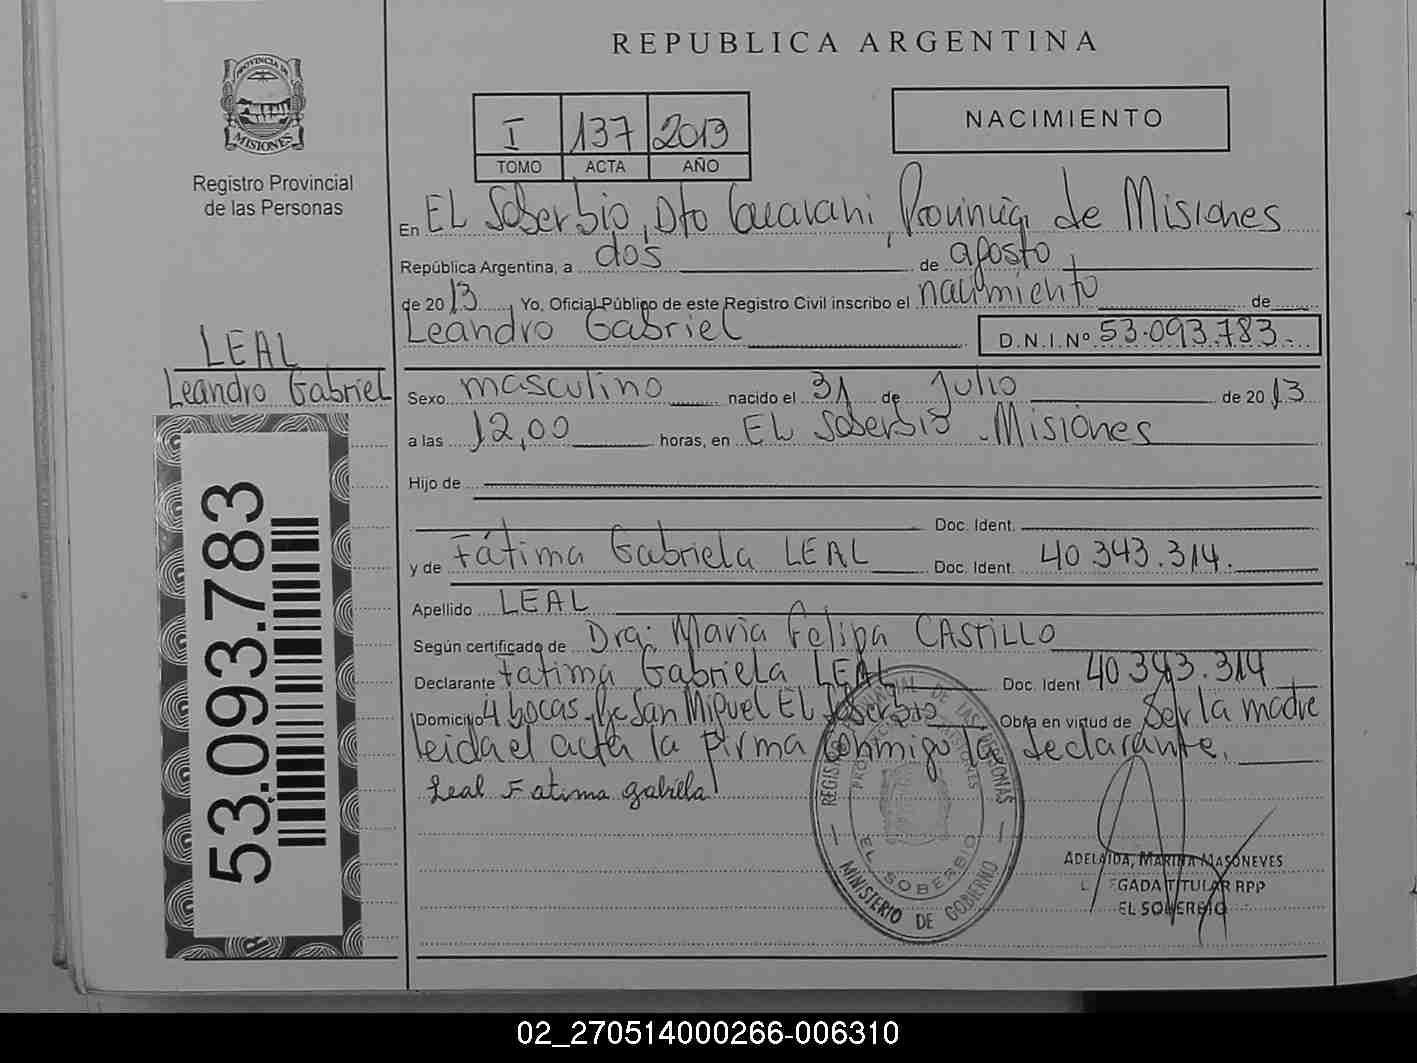 REPUBLICA ARGENTINA
PROVINCIA DE
MISIONES
Registro Provincial
de las Personas
I 137 2013
TOMO ACTA AÑO
NACIMIENTO
En EL Soberbio, Dto Guarani, Provincia de Misiones
República Argentina, a dos de agosto
de 2013 Yo, Oficial Público de este Registro Civil inscribo el nacimiento de
Leandro Gabriel D.N.I.Nº 53.093.783.
LEAL
Leandro Gabriel
Sexo masculino nacido el 31 de Julio de 2013
a las 12,00 horas, en EL Soberbio Misiones
Hijo de
Doc. Ident.
y de Fátima Gabriela LEAL Doc. Ident. 40 343.314.
Apellido LEAL
Según certificado de Dra: Maria Felipa CASTILLO
Declarante Fatima Gabriela LEAL Doc. Ident 40 343.314
Domicilio 4 bocas, San Miguel EL Soberbio Obra en virtud de Ser la madre
leida el acta la firma conmigo la declarante.
Leal Fatima gabriela
53.093.783
EL SOBERBIO
MINISTERIO DE GOBIERNO
ADELAIDA, MARINA MASONEVES
GADA TITULAR RPP
EL SOBERBIO
02_270514000266-006310